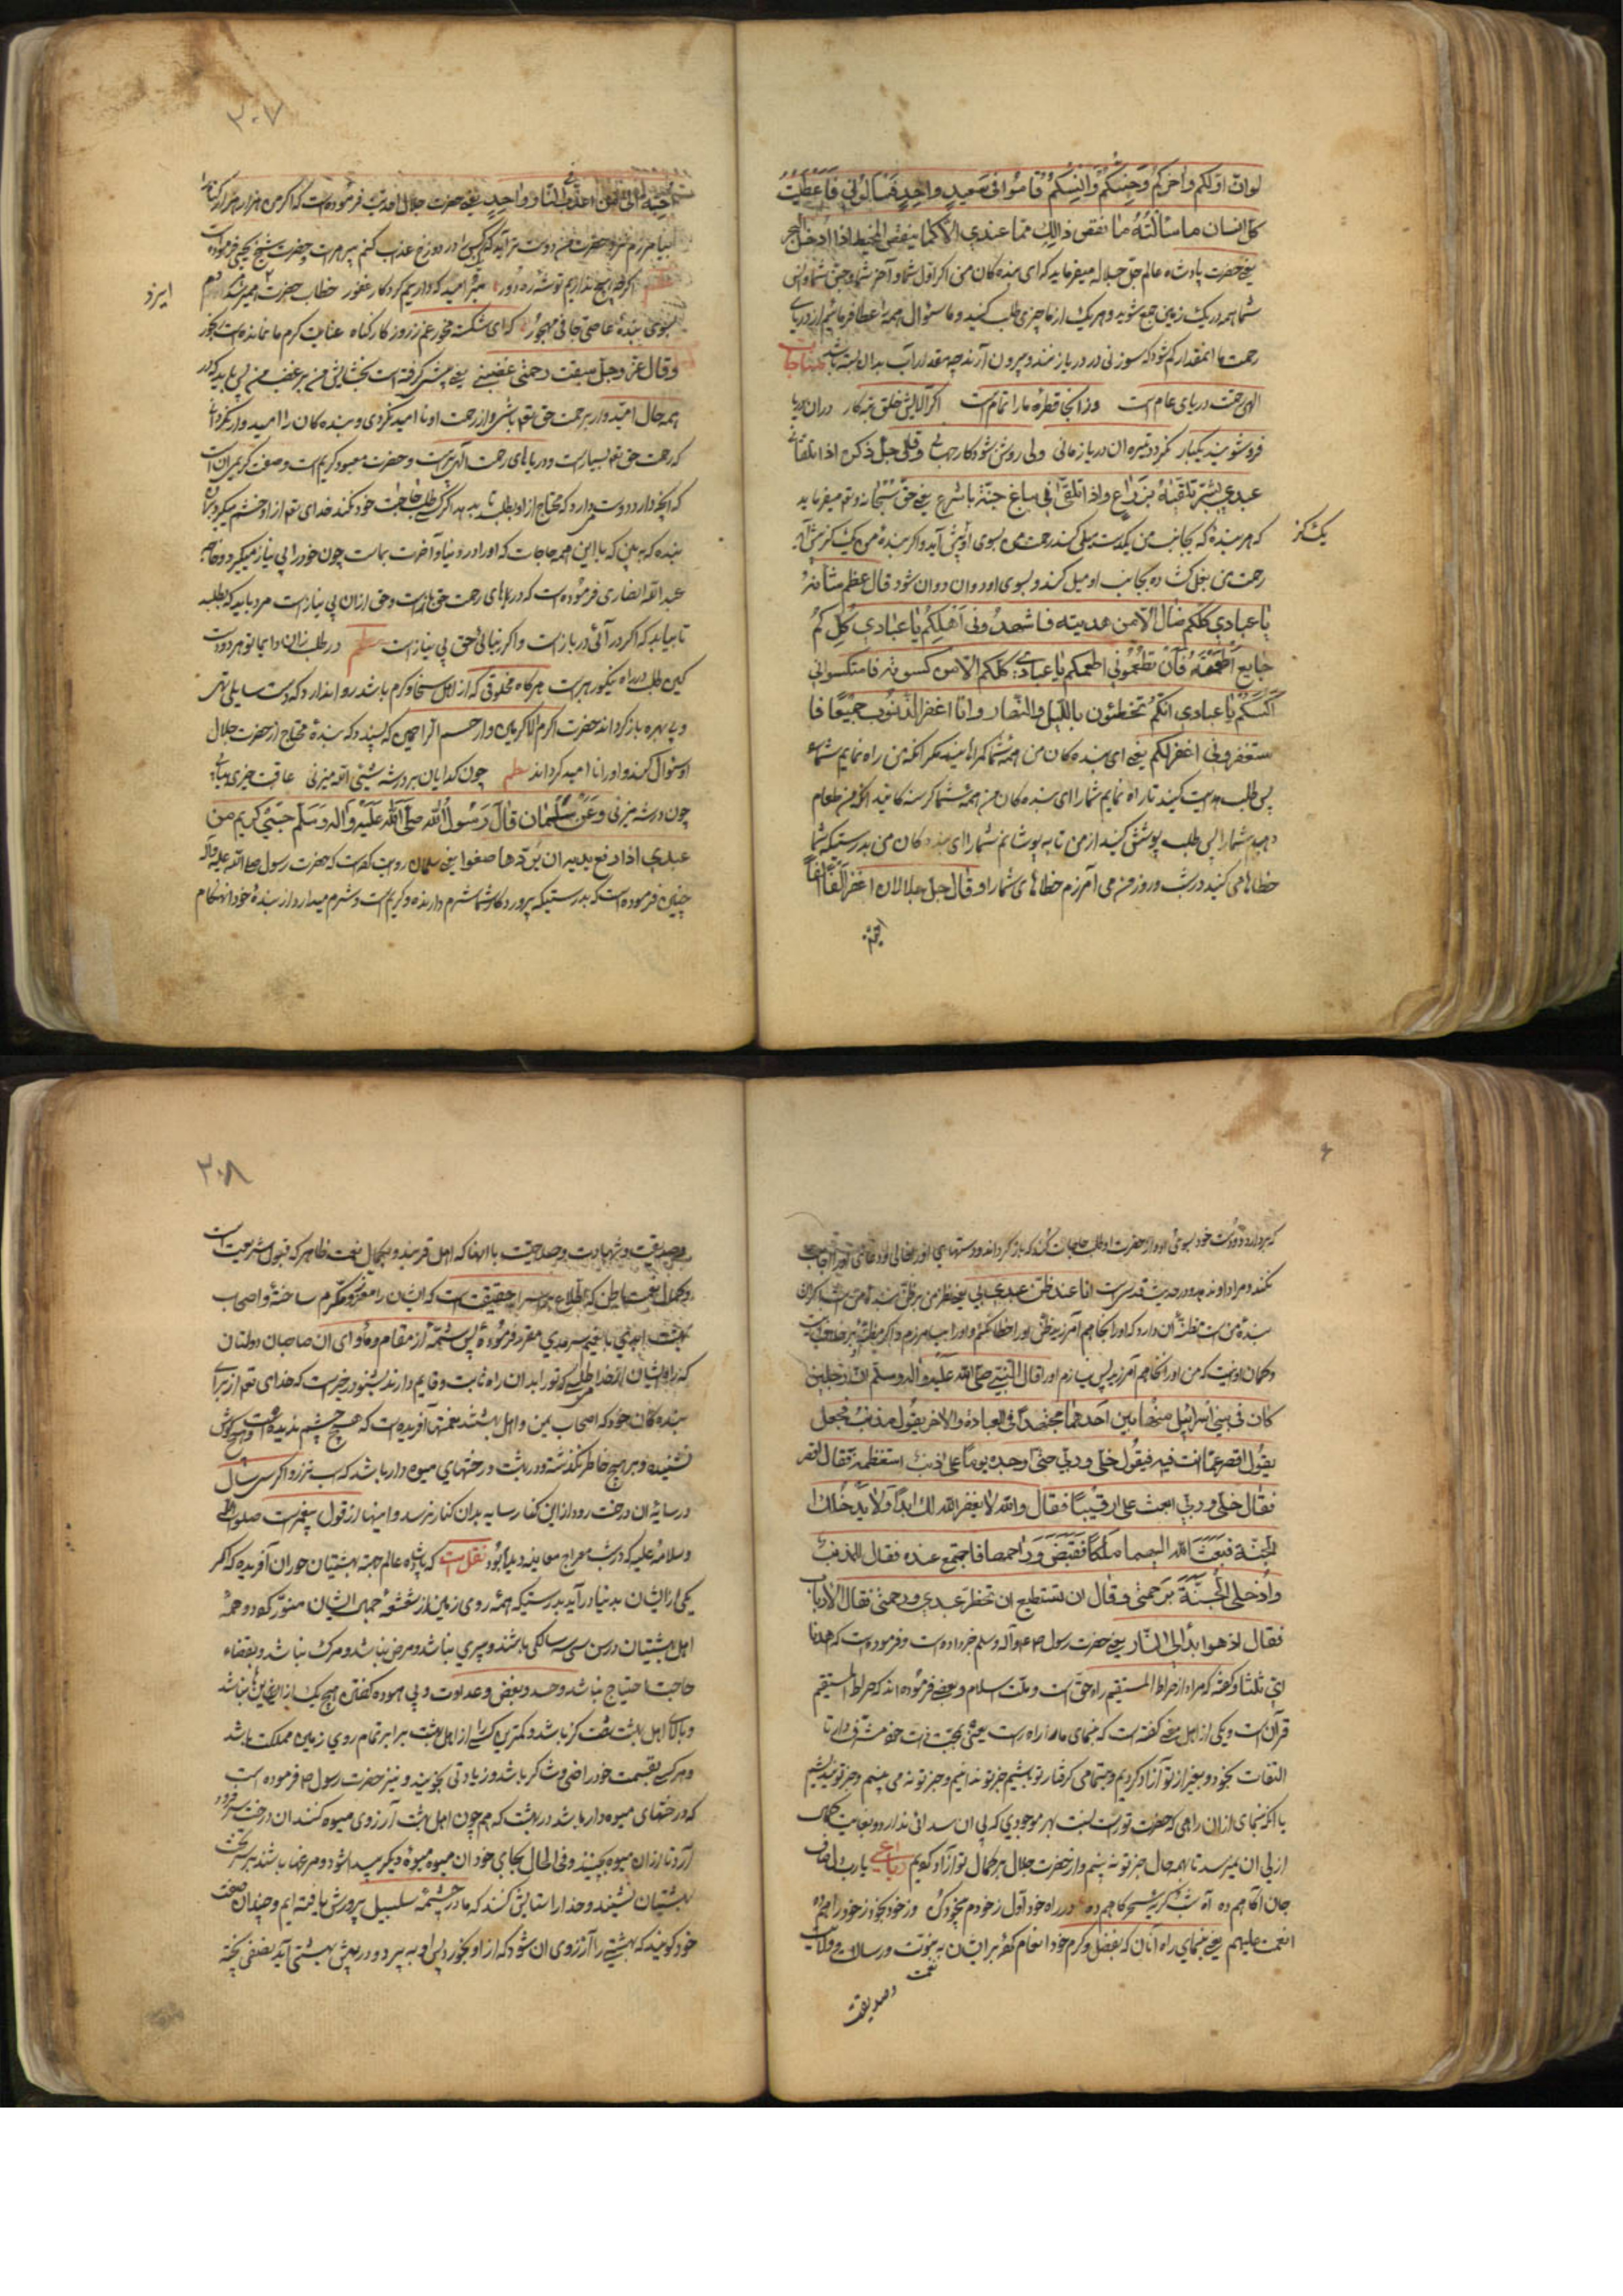 لو ان اولكم واخركم وجنكم وانسكم قاموا فى صعيد واحد فسألونى فاعطيت
كل انسان ما سألته ما نقص ذالك مما عندي الا كما ينقص المخيط اذا ادخل البحر
يعنى حضرت پادشاه عالم جل جلاله ميفرمايد كه اى بنده كان من اكر اول شما و آخر شما و جن شما و انس
شما همه در يك زمين جمع شويد و هر يك از ما چيزى طلب كنيد و ما سئوال همه را عطا فرمائيم از درياى
رحمت ما انمقدار كم شود كه سوزنى در دريا زنند و بيرون آرند چه مقدار آب بدان بسته باشد مناجات
الهى رحمتت درياى عام است وز انجا قطرۀ ما را تمام است اكر الايش خلق تبه كار دران دريا
فروشويند يكبار نكردد تيره ان دريا زمانى ولى روشن شود كار جهانى وقال جل ذكره اذا تلقانى
عبدي بشبر تلقيته بذراع واذا تلقانى بباع جئته باسرع يعنى حق سبحانه وتع ميفرمايد
كه هر بنده كه بجانب من يكدست ميل كند رحمت من بسوى او پيش آيد و اكر بندۀ من يك كز پيش آيد
يك كز
رحمت من بغل كشاده بجانب او ميل كند و بسوى او دوان دوان شود قال عظم شأنه
يا عبادي كلكم ضال الا من هديته فاستهدونى اهدكم يا عبادي كلكم
جايع الا من اطعمته فان تطعمونى اطعمكم يا عبادي كلكم الا من كسوته فاستكسوانى
اكسكم يا عبادي انكم تخطئون بالليل والنهار وانا اغفر الذنوب جميعا فا
ستغفرونى اغفر لكم يعنى اى بنده كان من همه شما كمراهانيد مكر انكه من راه نمايم شما را
پس طلب هدايت كنيد تا راه نمايم شما را اى بنده كان من همه شما كرسنه كانيد الا انكه من طعام
دهم شما را پس طلب پوشش كنيد از من تا بپوشانم شما را اى بنده كان من بدرستيكه شما
خطاها مى كنيد در شب و روز و من مى آمرزم خطاهاى شما را و قال جل جلاله لان اغفر الفا الفا
احبّ
٣٠٧
احب الى من اعذب فى النار واحد يعنى حضرت جلال احديت فرموده است كه اكر من هزار هزار كناه
بيامرزم نزد حضرت من دوست تر آيد كه يك كس را در دوزخ عذاب كنم و حضرت شيخ يحيى فرموده است
نظم اكر چه هيچ نداريم توشۀ ره دور اميد كه داريم كردكار غفور خطاب حضرت
ايزد
بسوى بندۀ عاصى جانى مهجور كه اى شكسته مخور غم ز روز كار كناه عنايت كرم ما نمانده است
وقال عز وجل سبقت رحمتى غضبى يعنى پيشى كرفته است بخشايش من بر غضب من پس بايد كه در
همه حال اميدوار برحمت حق تع باشى و از رحمت او نا اميد نكردى و بنده كان را اميدوار كردانى
كه رحمت حق تع بسيار است و درياهاى رحمت الهى پر است و حضرت معبود كريم است و صفت كريم ان است
كه انچه دارد دوست دارد كه محتاج از او بطلبد تا بدهد اكر كسى طلب حاجت خود نكند خداى تع از او خشم ميكيرد بر آن
بنده كه ببين كه با اين همه حاجات كه او را در دنيا و آخرت بماست چون خود را بى نياز ميكيرد و خواجه
عبد الله انصارى فرموده است كه درياهاى رحمت حق پر است و حق از ان بى نياز است مرد بايد كه بطلبد
تا بيابد كه اكر در آئى در باز است و اكر نيائى حق بى نياز است نظم در طلب زن دايما تو هر دو دست
كين طلب در راه نيكو رهبر است هركاه مخلوقى كه از اهل سخا و كرم باشد روا ندارد كه دست سايلى تهى
و بى بهره باز كرداند حضرت اكرم الاكرمين و ارحم الراحمين كه پسندد كه بندۀ محتاج از حضرت جلال
او سئوال كند و او را نا اميد كرداند نظم چون كدايان بر در شه شيئى لله ميزنى عاقبت چيزى بيابى
چون در شه ميزنى وعن سلمان قال رسول الله صلى الله عليه واله وسلم حيى كريم من
عبدي اذا رفع يديه ان يردها صفرا يعنى سلمان روايت كرده است كه حضرت رسول صلى الله عليه وآله
چنين فرموده است كه بدرستيكه پروردكار شما شرم دارنده و كريم است و شرم ميدارد از بندۀ خود انهنكام
كه بردارد دو دست خود بسوى او و از حضرت او طلب حاجات كند كه باز كرداند دستهاى او را خالى و دعاى او را اجابت
نكند و مراد او ندهد و در حديث قدسى است انا عند ظن عبدي بى يعنى نظر من بر ظن بندۀ من است اكر ان
بندۀ من است مظنۀ آن دارد كه او را نخواهم آمرزيد ظن او را خطا نكنم و او را بيامرزم و اكر مظنۀ
و كمان او نيست كه من او را نخواهم آمرزيد پس نيامرزم او را قال النبى صلى الله عليه واله وسلم ان رجلين
كان فى بنى اسرائيل متحابين احدهما مجتهد فى العبادة والاخر يقول مذنب فجعل
يقول اقصر عما انت فيه فيقول خلى وربى حتى وجده يوما على ذنب استعظمه فقال اقصر
فقال خلى وربى ابعثت على رقيبا فقال والله لا يغفر الله لك ابدا ولا يدخلك
الجنة فبعث الله اليهما ملكا فقبض ارواحهما فاجتمع عنده فقال للمذنب
وادخل الجنة برحمتى وقال ان تستطيع ان تحظر عبدي رحمتى فقال لا يا رب
فقال اذهبوا به الى النار يعنى حضرت رسول ص وآله وسلم خبر داده است و فرموده است كه اهدنا
اى ثبتنا و كفته كه مراد از صراط المستقيم راه حق است و ملت اسلام و بعضى فرموده اند كه صراط المستقيم
قرآن است و يكى از اهل معنى كفته است كه بنماى ما را راه راست يعنى بمحبت ذات خود مشرف دار تا
التفات بخود و بغير از تو آزاد كرديم و بتمامى كرفتار تو باشيم جز تو ندانيم و جز تو نه بينيم و جز تو نينديشيم
يا انكه بنماى از ان راهى كه حضرت تو راست نسبت بهر موجودى كه بى ان سدانى ندارد و بغايت كمال
ازلى ان نميرسد تا بهمه حال جز تو نه بينيم و از حضرت جلال بر كمال تو آزاد كويم رباعى يا رب
جان آكاهم ده آه شب و كريۀ سحركاهم ده در راه خود اول ز خودم بيخود كن وز خود بيخود ز خود راهم ده
انعمت عليهم يعنى بنماى راه آنان كه بفضل و كرم خود انعام كرده بر ايشان به نعمت نبوت و رسالت و ولايت
وصديقت
٣٠٨
وصديقيت و شهادت و صلاحيت با انها كه اهل قربند و بكمال نعمت ظاهر كه قبول شريعت است
و كمال نعمت باطن كه اطلاع بر اسرار حقيقت است كه ايشان را معزز و مكرم ساختۀ و اصحاب
بهشت ابدي با نعيم سرمدي مقرر فرمودۀ پس شمۀ از مقام و مأواى ان صاحبان دولتان
كه راه ايشان از خدا طلبى كه تو را بدان راه ثابت و قايم دارند بشنو در خبر است كه خداى تع از براى
بنده كان خود كه اصحاب يمن و اهل بهشتند نعمتى آفريده است كه هيچ چشم نديده است و هيچ كوش
نشنيده و بر هيچ خاطر نكذشته و در بهشت درختهاى ميوه دار باشد كه اسب تيز رو اكر سى سال
در سايۀ ان درخت رود از اين كنار سايه بدان كنار نرسد و اينها از قول پيغمبر است صلوات الله
وسلامه عليه كه در شب معراج معاينه ديده بود نقلست كه پادشاه عالم جهة بهشتيان حوران آفريده كه اكر
يكى از ايشان بدنيا درآيد بدرستيكه همۀ روى زمين از شعشعۀ جمال ايشان منور كردد و همۀ
اهل بهشتيان در سن سى سالكى باشند و پيري نباشد و مرض نباشد و مرك نباشد و بقضاء
حاجت احتياج نباشد و حسد و بغض و عداوت و بى هوده كفتن هيچ يك از اينها نباشد
و بالاى اهل بهشت شصت كز باشد و كمترين كس از اهل بهشت برابر تمام روي زمين مملكت باشد
و هر كس بقسمت خود راضى و شاكر باشد و زيادتى نجويند و نيز حضرت رسول ص فرموده است
كه درختهاى ميوه دار باشد در بهشت كه هر چون اهل بهشت آرزوى ميوه كنند ان درخت سر فرود
آرد تا از ان ميوه بچينند و فى الحال بجاي خود ان ميوه ميوۀ ديكر پيدا شود و مرغها باشند بر تخت
بهشتيان نشينند و خدا را ستايش كنند كه ما در چشمۀ سلسبيل پرورش يافته ايم و چندان صفت
خود كويند كه بهشتى را آرزوى ان شود كه از او بخورد پس او بپرد و در پيش بهشتى آيد نصفى پخته